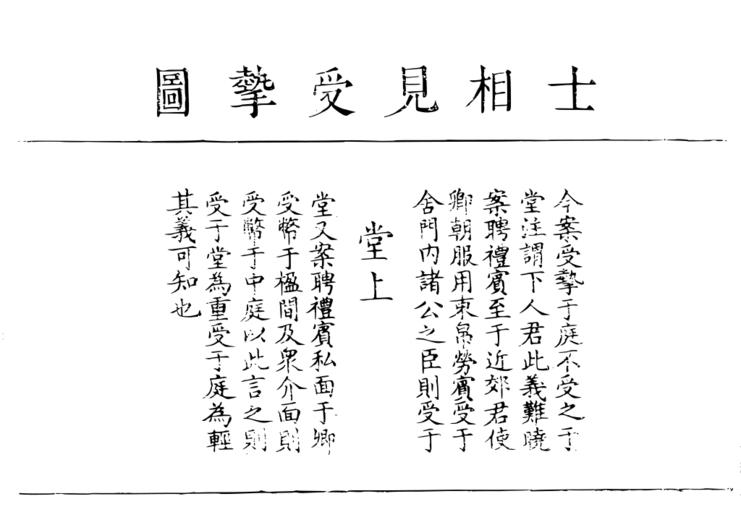 士相見受摯圖
今案受摯于庭不受之于
堂注謂下人君此義難曉
案聘禮賓至于近郊君使
卿朝服用束帛勞賓受于
舍門内諸公之臣則受于
堂上
堂又案聘禮賓私面于卿
受幣于楹間及衆介面則
受幣于中庭以此言之則
受于堂為重受于庭為輕
其義可知也